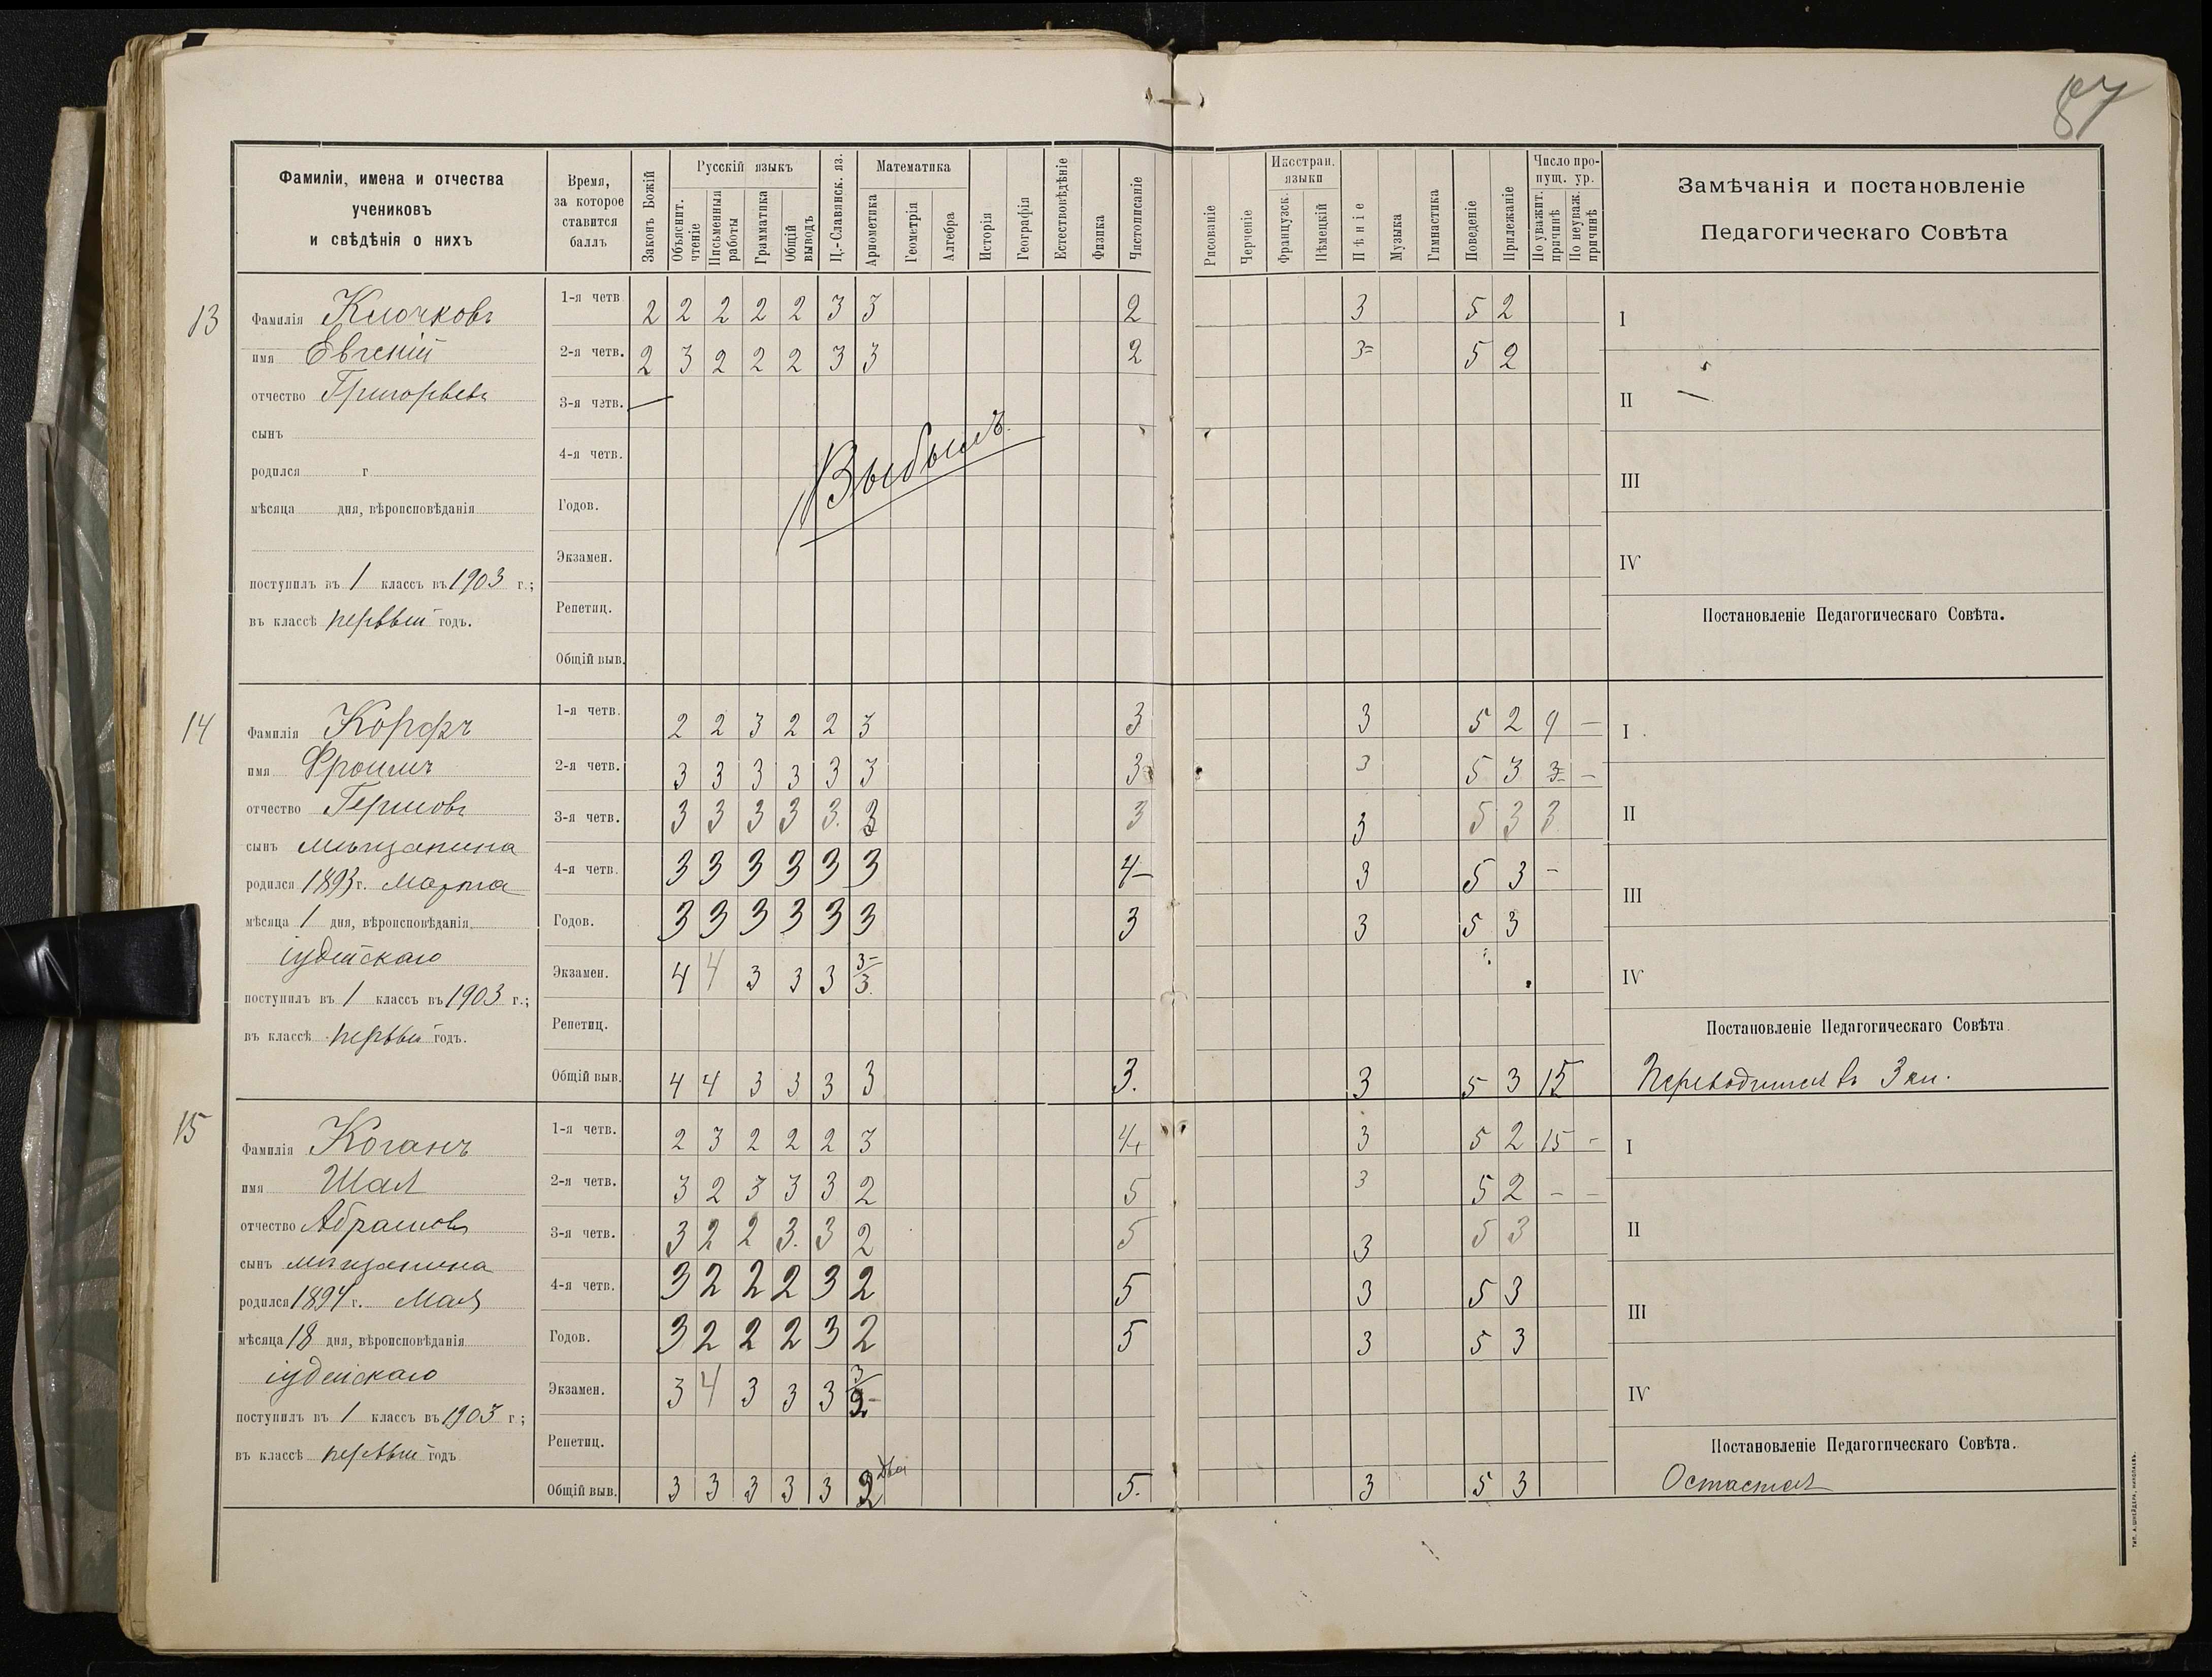 87
Фамиліи, имена и отчества
учениковъ
и свѣдѣнія о нихъ
Время,
за которое
ставится
баллъ
Законъ Божій
Русскій языкъ
Объяснит. чтеніе
Письменныя работы
Грамматика
Общій выводъ
Ц.-Славянск. яз.
Математика
Ариѳметика
Геометрія
Алгебра
Исторія
Географія
Естествовѣдѣніе
Физика
Чистописаніе
Рисованіе
Черченіе
Иностран. языки
Французск.
Нѣмецкій
Пѣніе
Музыка
Гимнастика
Поведеніе
Прилежаніе
Число пропущ. ур.
По уважит. причинѣ
По неуваж. причинѣ
Замѣчанія и постановленіе
Педагогическаго Совѣта
13
Фамилія Клочковъ
имя Евгеній
отчество Григорьевъ
сынъ
родился г
мѣсяца дня, вѣроисповѣданія
поступилъ въ 1 классъ въ 1903 г.;
въ классѣ первый годъ.
1-я четв 2 2 2 2 2 3 3 2 3 5 2
2-я четв. 2 3 2 2 2 3 3 2 3= 5 2
3-я четв. —
4-я четв.
Выбылъ.
Годов.
Экзамен.
Репетиц.
Общій выв.
I
II
III
IV
Постановленіе Педагогическаго Совѣта.
14
Фамилія Корфъ
имя Фроимъ
отчество Гершовъ
сынъ мѣщанина
родился 1893 г. Марта
мѣсяца 1 дня, вѣроисповѣданія
іудейскаго
поступилъ въ 1 классъ въ 1903 г.;
въ классѣ первый годъ.
1-я четв. 2 2 3 2 2 3 3 3 5 2 9 —
2-я четв. 3 3 3 3 3 3 3 3 5 3 3 —
3-я четв. 3 3 3 3 3. 3 3 3 5 3 3
4-я четв. 3 3 3 3 3 3 4- 3 5 3 -
Годов. 3 3 3 3 3 3 3 3 5 3
Экзамен. 4 4 3 3 3 3-/3.
Репетиц.
Общій выв. 4 4 3 3 3 3 3. 3 5 3 15
I
II
III
IV
Постановленіе Педагогическаго Совѣта
Переводится въ 3 кл.
15
Фамилія Коганъ
имя Шая
отчество Абрамовъ
сынъ мѣщанина
родился 1894 г. Мая
мѣсяца 18 дня, вѣроисповѣданія
іудейскаго
поступилъ въ 1 классъ въ 1903 г;
въ классѣ первый годъ
1-я четв. 2 3 2 2 2 3 4+ 3 5 2 15 -
2-я четв. 3 2 3 3 3 2 5 3 5 2 - -
3-я четв. 3 2 2 3. 3 2 5 3 5 3
4-я четв. 3 2 2 2 3 2 5 3 5 3
Годов. 3 2 2 2 3 2 5 3 5 3
Экзамен. 3 4 3 3 3 3/2-
Репетиц.
Общій выв. 3 3 3 3 3 2 два 5. 3 5 3
I
II
III
IV
Постановленіе Педагогическаго Совѣта.
Остается
ТИП. А. ШНЕЙДЕРА, НИКОЛАЕВЪ.